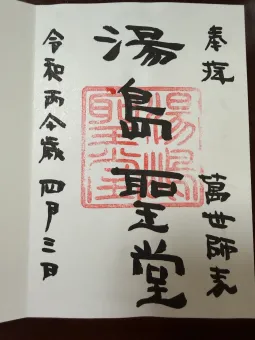 奉拝 萬世師表
湯島聖堂
令和丙午歳 四月三日
湯島
聖堂